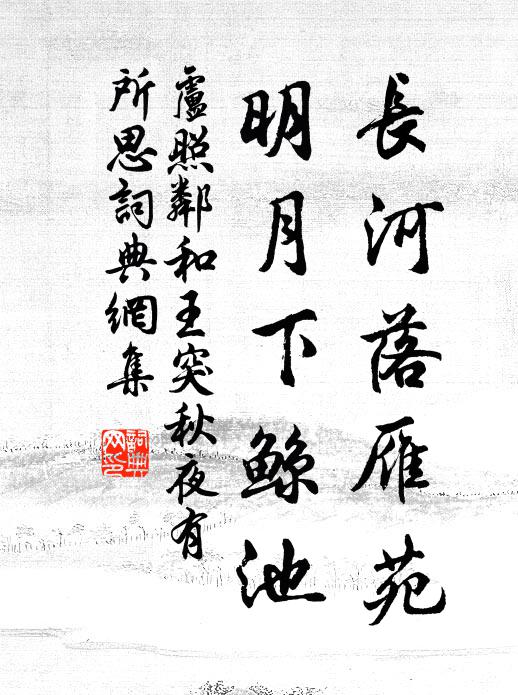 長河落雁苑
明月下鲸池
盧照鄰和王突秋夜有
所思詞典網集
詞典
网印